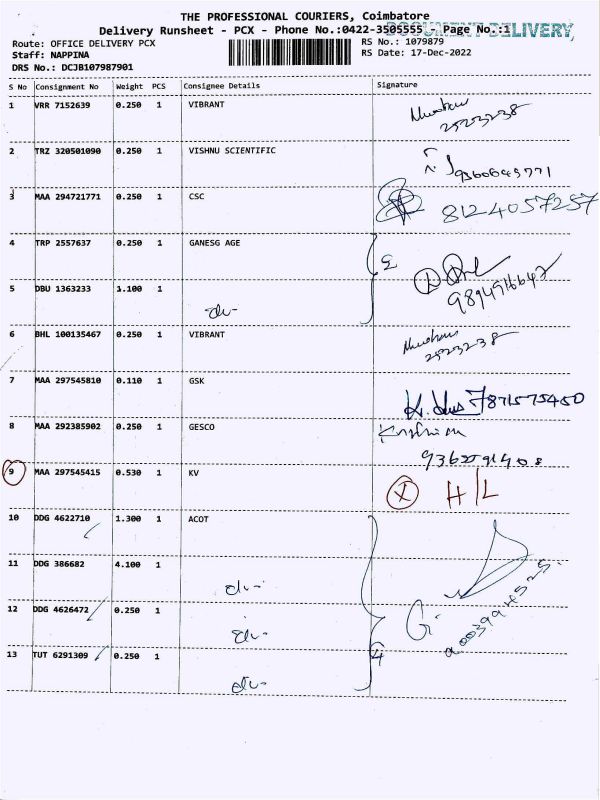 THE PROFESSIONAL COURIERS, Coimbatore
Delivery Runsheet - PCX - Phone No.:0422-3505555 Page No.:1
DOCUMENT DELIVERY,
Route: OFFICE DELIVERY PCX
RS No.: 1079879
Staff: NAPPINA
RS Date: 17-Dec-2022
DRS No.: DCJB107987901
S No Consignment No Weight PCS Consignee Details Signature
1 VRR 7152639 0.250 1 VIBRANT
2523238
2 TRZ 320501090 0.250 1 VISHNU SCIENTIFIC
9360645771
3 MAA 294721771 0.250 1 CSC 8124057257
4 TRP 2557637 0.250 1 GANESG AGE
5 DBU 1363233 1.100 1
9894916647
6 BHL 100135467 0.250 1 VIBRANT
2523238
7 MAA 297545810 0.110 1 GSK
7871575450
8 MAA 292385902 0.250 1 GESCO
9 MAA 297545415 0.530 1 KV X H/L
10 DDG 4622710 1.300 1 ACOT
11 DDG 386682 4.100 1
12 DDG 4626472 0.250 1
13 TUT 6291309 0.250 1